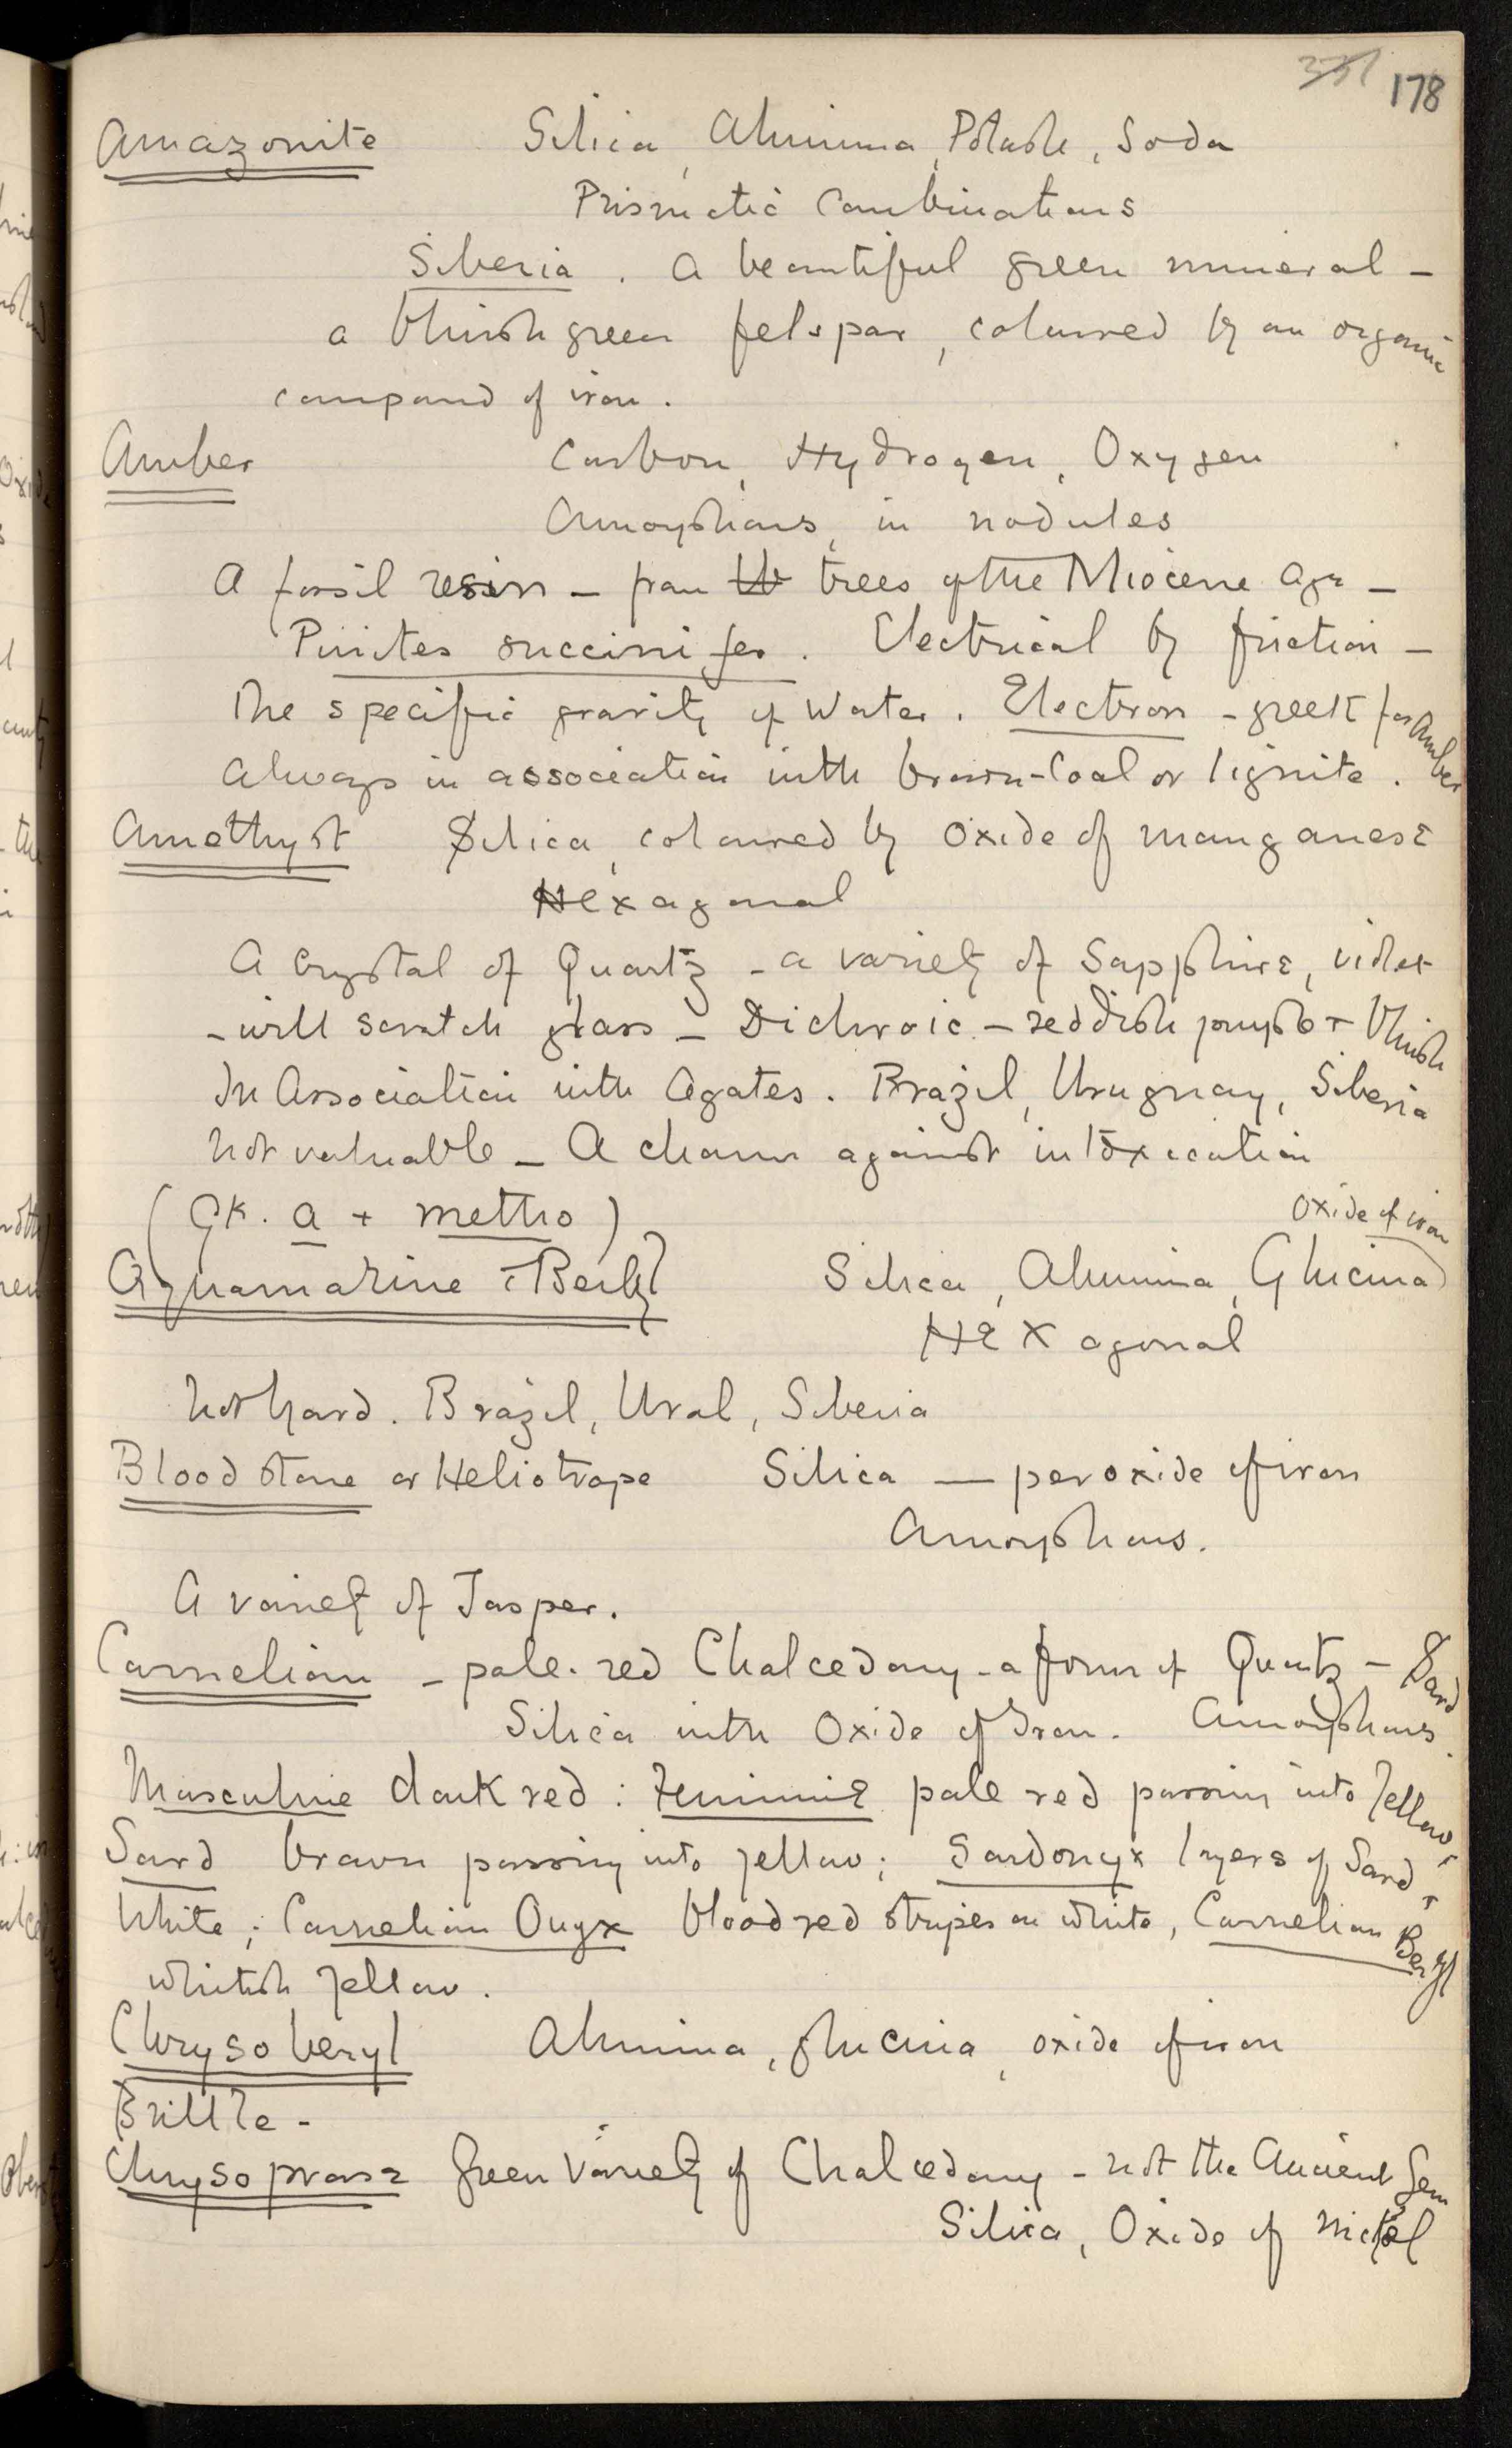 331 178
Amazonite Silica, Alumina, Potash, Soda
Prismatic Combinations
Siberia. A beautiful green mineral –
a bluish green felspar, coloured by an organic
compound of iron.
Amber Carbon, Hydrogen, Oxygen
Amorphous, in nodules
A fossil resin – from the trees of the Miocene Age –
Pinites succinifer. Electrical by friction –
The specific gravity of Water. Electron – greek for Amber
Always in association with brown-Coal or lignite.
Amethyst Silica, coloured by oxide of manganese
Hexagonal
A Crystal of Quartz – a variety of Sapphire, violet
– will scratch glass – Dichroic – reddish purple + bluish
In Association with Agates. Brazil, Uruguay, Siberia
Not valuable – A charm against intoxication
(Gk. a + metho)
oxide of iron
Aquamarine + Beryl Silica, Alumina, Glucina
Hexagonal
Not hard. Brazil, Ural, Siberia
Bloodstone or Heliotrope Silica — peroxide of iron
Amorphous.
A variety of Jasper.
Carnelian – pale. red Chalcedony – a form of Quartz – Sard
Silica with Oxide of Iron. Amorphous.
Masculine dark red : Feminine pale red passing into Yellow;
Sard brown passing into yellow; Sardonyx layers of Sard +
White; Carnelian Onyx blood red stripes on white, Carnelian Beryl
whitish Yellow.
Chrysoberyl Alumina, glucina, oxide of iron
Brittle –
Chrysoprase Green Variety of Chalcedony – not the Ancient Gem
Silica, Oxide of nickel